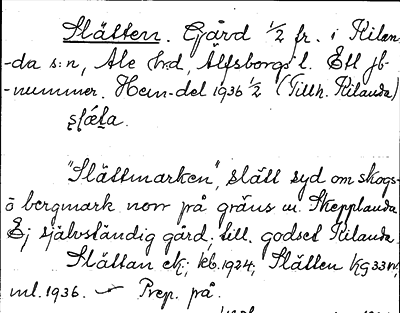 Slätten. Gård 1/2 fr. i Kilan-
-da s:n, Ale h:d, Älfsborgs l. Ett jb-
-nummer. Hem-del 1936 1/2 (Tillh. Kilanda)
"Slättmarken", slätt syd om skogs-
o bergmark norr på gräns m. Skepplanda
Ej självständig gård, till. godset Kilanda.
Slättan ek; kb. 1924; Slätten KG 33 N;
ml. 1936. — Prep. på.